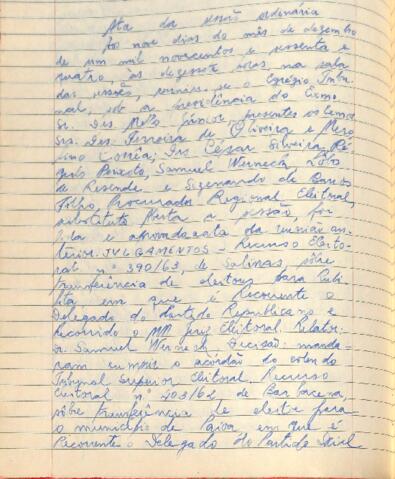 Ata da sessão ordinária
Ao nove dias do mês de dezembro
de um mil novecentos e sessenta e
quatro, às dezessete horas, na sala
das sessões, reuniu-se o Egrégio Tribu-
nal, sob a presidência do Exmo
Sr. Des. Mello Júnior, presentes os Exmos
Srs. Des. Ferreira de Oliveira e
Corrêa, Drs. César Silveira,
Peixoto, Samuel Werneck,
de Resende e Sizenando de Barros
Filho, Procurador Regional Eleitoral,
substituto. Aberta a sessão, foi
lida e aprovada a ata da reunião an-
terior. JULGAMENTOS - Recurso Eleito-
ral nº 390/63, de Salinas, sôbre
transferência de eleitores para
em que é Recorrente o
Delegado do Partido Republicano e
Recorrido o MM. Juiz Eleitoral. Relator:
Dr. Samuel Werneck. Decisão: manda-
ram cumprir o acórdão do colendo
Tribunal Superior Eleitoral. Recurso
Eleitoral nº 403/62, de Barbacena,
sôbre transferência de eleitor para
o município de Paiva, em que é
Recorrente o Delegado do Partido